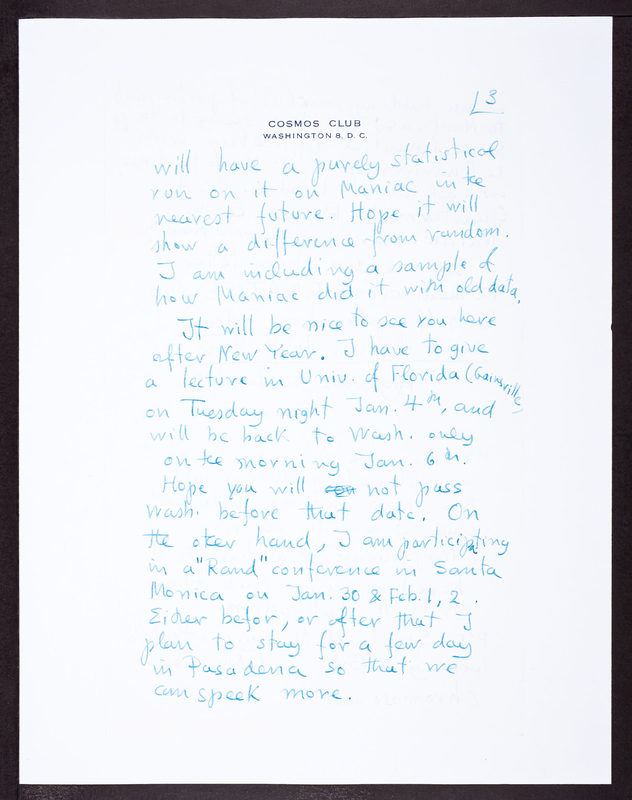 3
COSMOS CLUB
WASHINGTON 8, D. C.
will have a purely statistical
run on it on Maniac in the
nearest future. Hope it will
show a difference from random.
I am including a sample of
how Maniac did it with old data.
It will be nice to see you here
after New Year. I have to give
a lecture in Univ. of Florida (Gainsville)
on Tuesday night Jan. 4th, and
will be back to Wash. only
on the morning Jan. 6th.
Hope you will not pass
Wash. before that date. On
the other hand, I am participating
in a "Rand" conference in Santa
Monica on Jan. 30 & Feb. 1, 2.
Either befor, or after that I
plan to stay for a few day
in Pasadena so that we
can speek more.